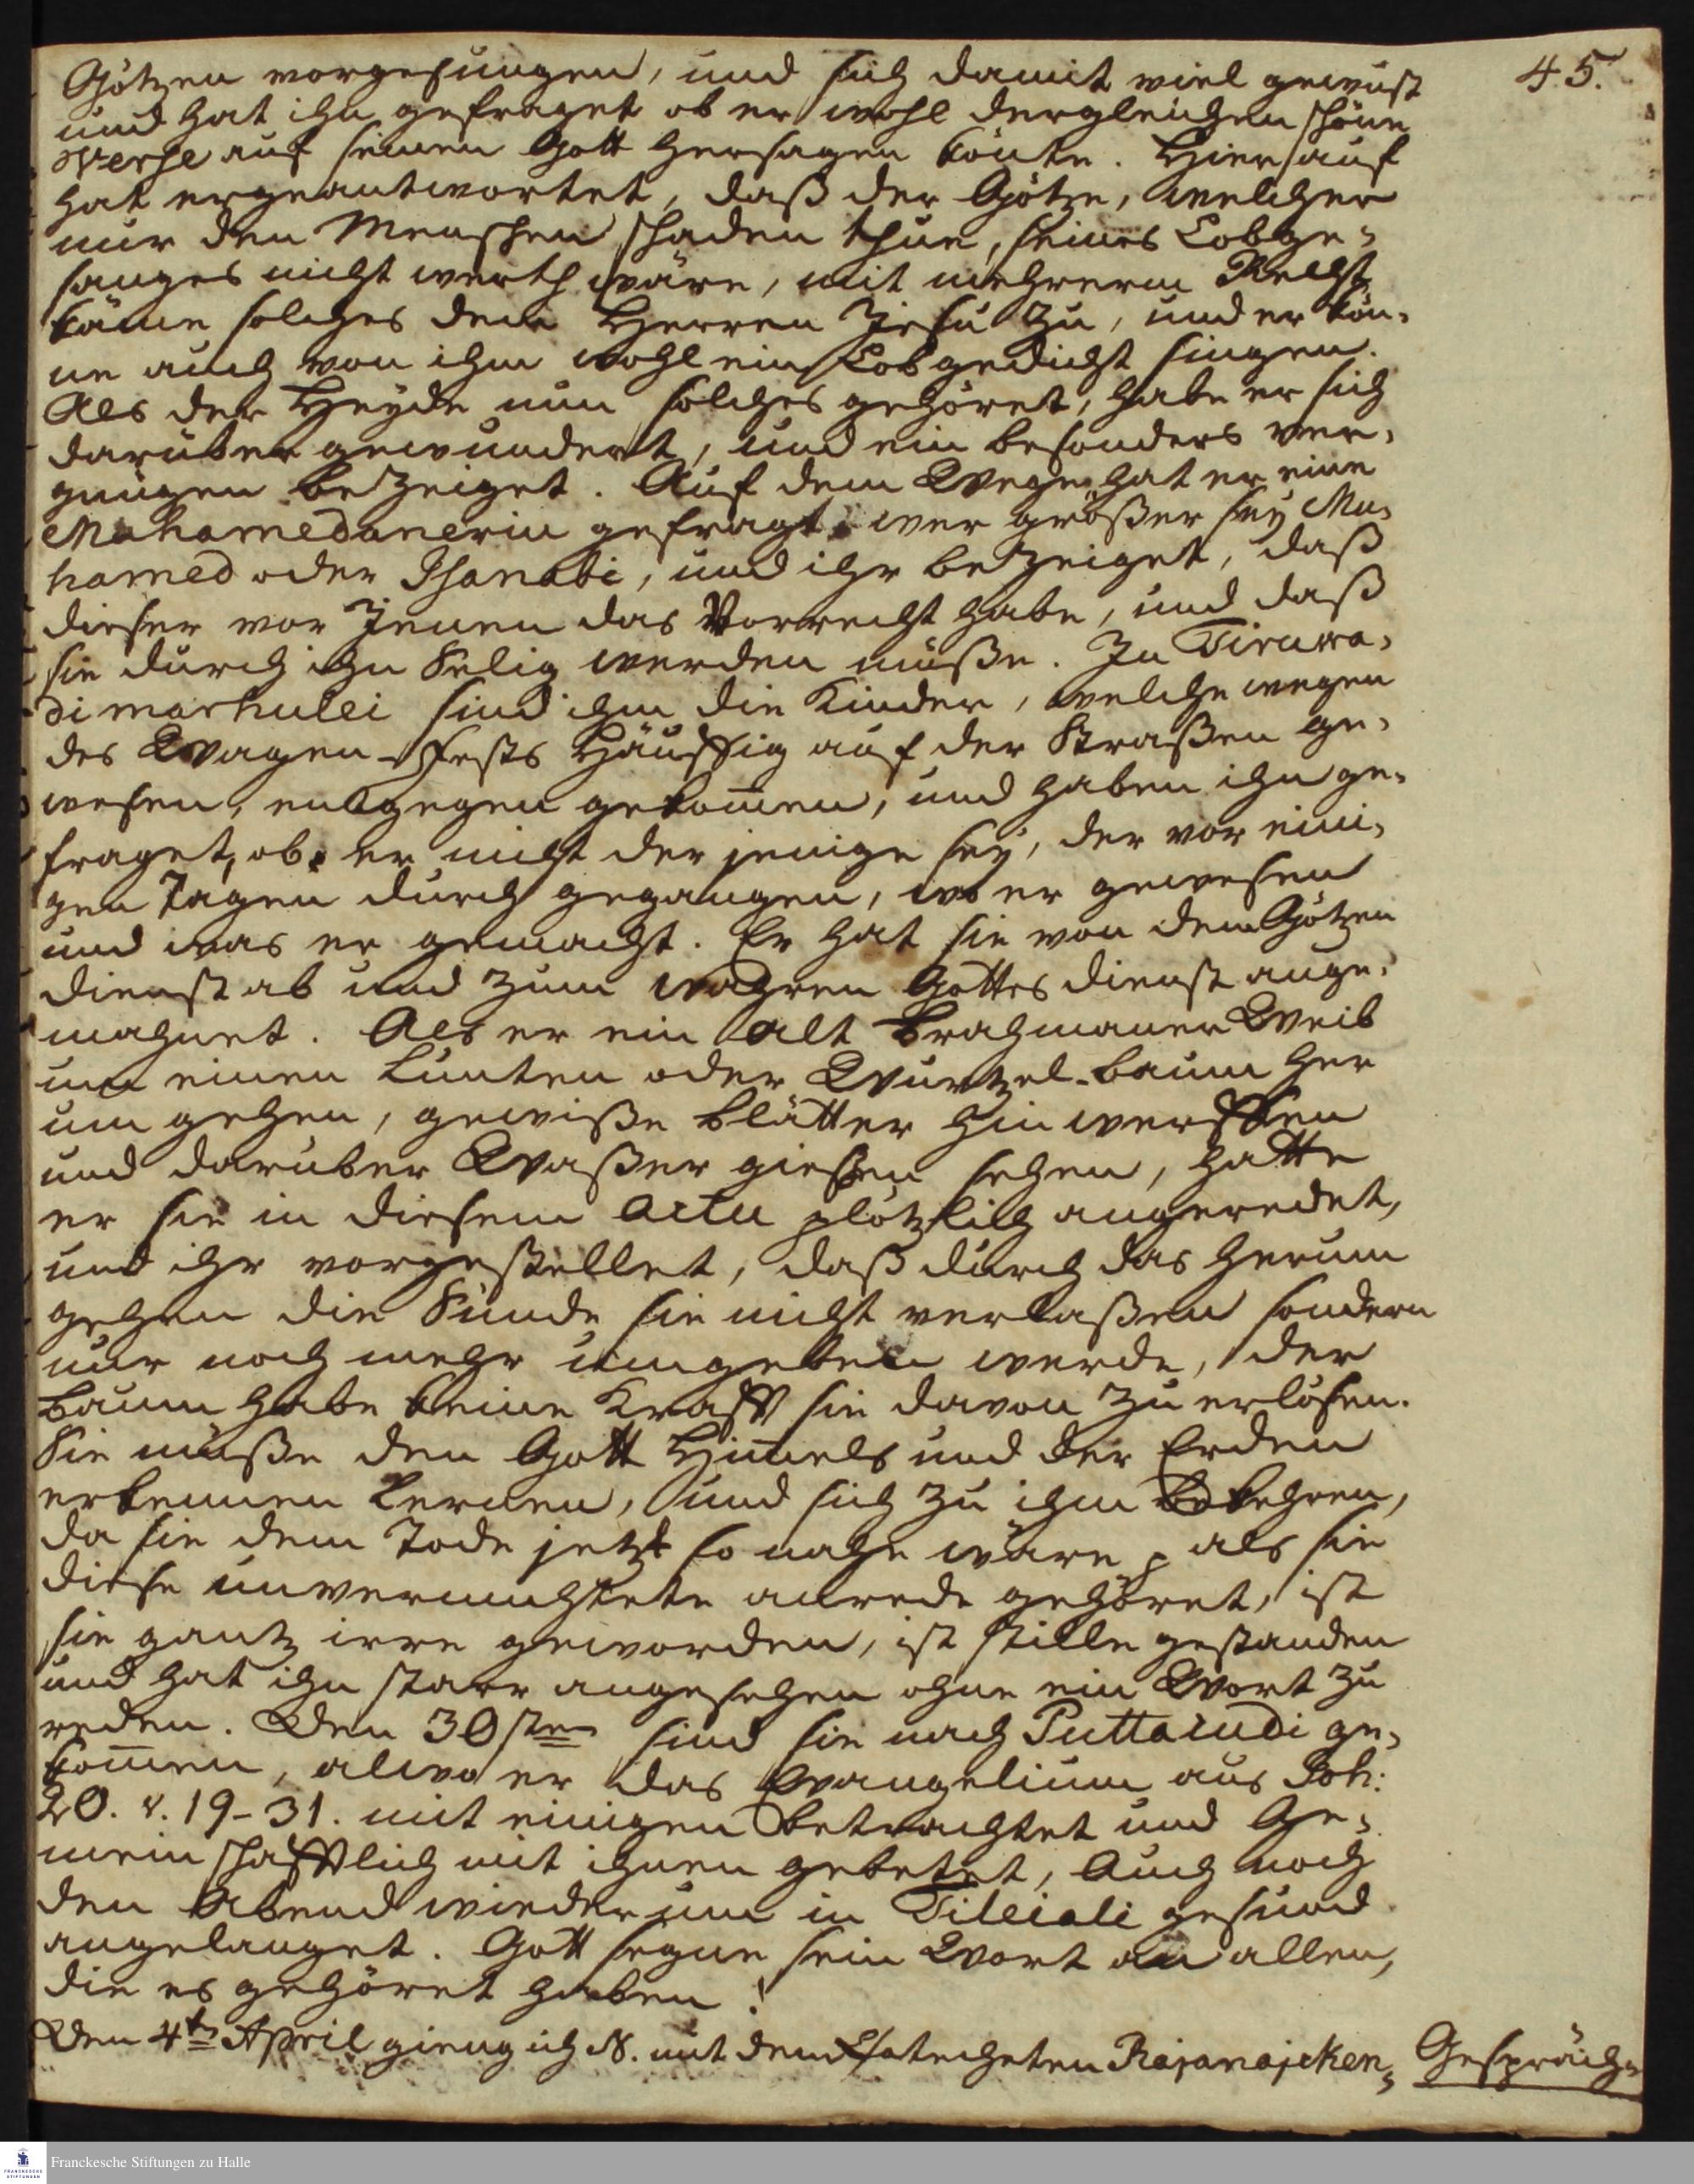 45.
Götzen vorgesungen, und sich damit viel gewust
und hat ihn gefraget ob er wohl dergleichen schöne
Verse auf seinen Gott hersagen könte. Hierauf
hat er geantwortet, daß der Götze, welcher
nur den Menschen schaden thue, seines Lobge-
sanges nicht werth wäre, mit mehrerm Recht
käme solches dem Herren Jesu zu, und er kön-
ne auch von ihm wohl ein Lobgedicht singen.
Als der Heyde nun solches gehöret, habe er sich
darüber gewundert, und ein besonders ver-
gnügen bezeiget. Auf dem Wege hat er eine
Mahamedanerin gefragt, wer größer sey Ma-
hamed oder Isanabi, und ihr bezeiget, daß
dieser vor Jenen das Vorrecht habe, und daß
sie durch ihn Selig werden müße. In Tiruwa-
dimarhulei sind ihm die Kinder, welche wegen
des Wagen-Fests häuffig auf der Straßen ge-
wesen, entgegen gekom̄en, und haben ihn ge-
fraget, ob er nicht der jenige sey, der vor eini-
gen Tagen durch gegangen, wo er gewesen
und was er gemacht. Er hat sie von dem Götzen
dienst ab und zum wahren Gottesdienst ange-
mahnet. Als er ein alt Brahmaner Weib
um einen Lunten oder Wurtzel-baum her
um gehen, gewiße blätter hinwerffen
und darüber Waßer gießen sehen, hatte
er sie in diesem actu plötzlich angeredet,
und ihr vorgestellet, daß durch das herum
gehen die Sünde sie nicht verlaßen sondern
nur noch mehr umgeben werde, der
baum habe keine Krafft sie davon zu erlösen.
Sie müße den Gott Him̄els und der Erden
erkennen lernen, und sich zu ihm bekehren,
da sie dem Tode jetzt so nahe wäre p als sie
diese unvermuhtete anrede gehöret, ist
sie gantz irre geworden, ist stille gestanden
und hat ihn starr angesehen ohne ein Wort zu
reden. Den 30sten sind sie nach Puttacudi ge-
kom̄en, alwo er das Evangelium aus Joh:
20. v. 19-31. mit einigen betrachtet und Ge-
meinschafftlich mit ihnen gebetet, Auch noch
den Abend wiederum in Tilleiali gesund
angelanget. Gott segne sein Wort an allen,
die es gehöret haben!
Den 4ten April gieng ich N. mit dem Catecheten Rajanajcken,
Gespräch
Franckesche Stiftungen zu Halle